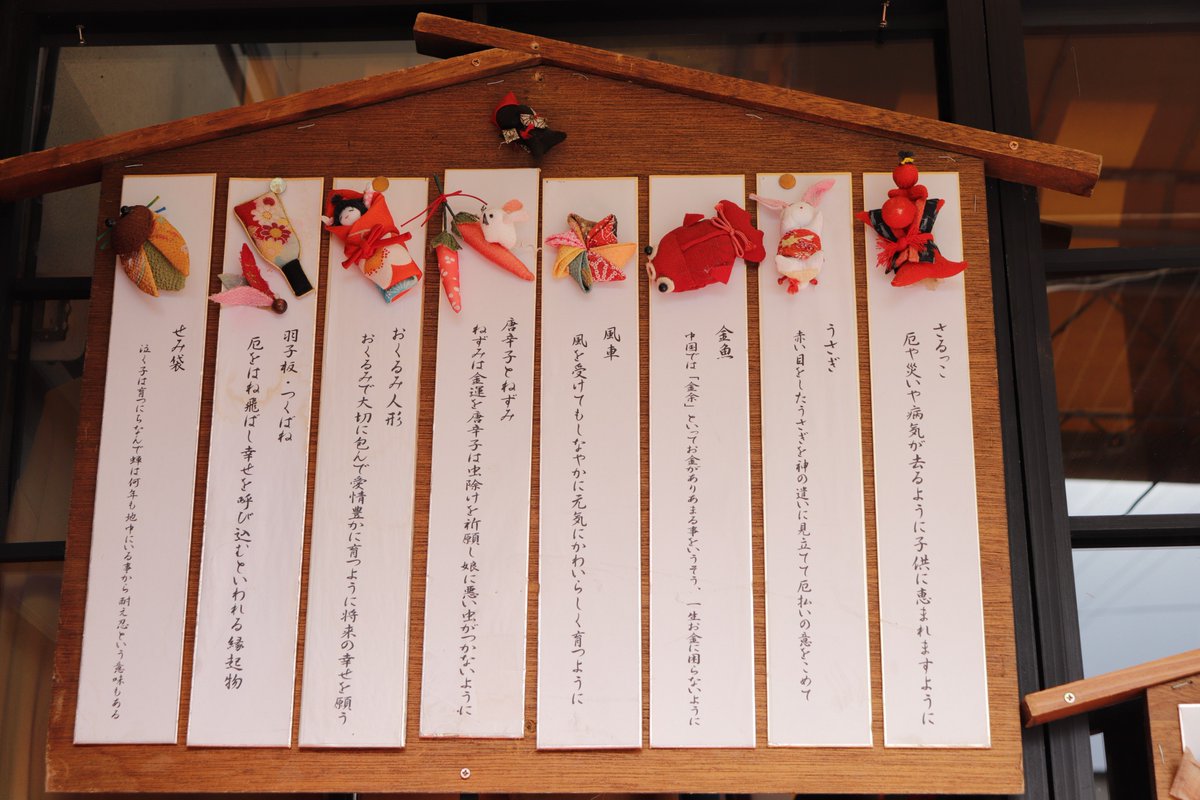 さるっこ
厄や災いや病気が去るように子供に恵まれますように
うさぎ
赤い目をしたうさぎを神の遣いに見立てて厄払いの意をこめて
金魚
中国では「金余」といってお金がありあまる事をいうそう、一生お金に困らないように
風車
風を受けてもしなやかに元気にかわいらしく育つように
唐辛子とねずみ
ねずみは金運を唐辛子は虫除けを祈願し娘に悪い虫がつかないように
おくるみ人形
おくるみで大切に包んで愛情豊かに育つように将来の幸せを願う
羽子板・つくばね
厄をはね飛ばし幸せを呼び込むといわれる縁起物
せみ袋
泣く子は育つにちなんで蝉は何年も地中にいる事から耐え忍という意味もある